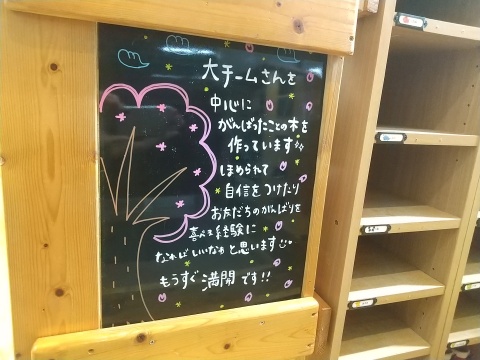 大チームさんを
中心に
がんばったことの本を
作っています
ほめられて
自信をつけたり
お友だちのがんばりを
喜べる経験に
なればいいなぁと思います
もうすぐ満開です!!